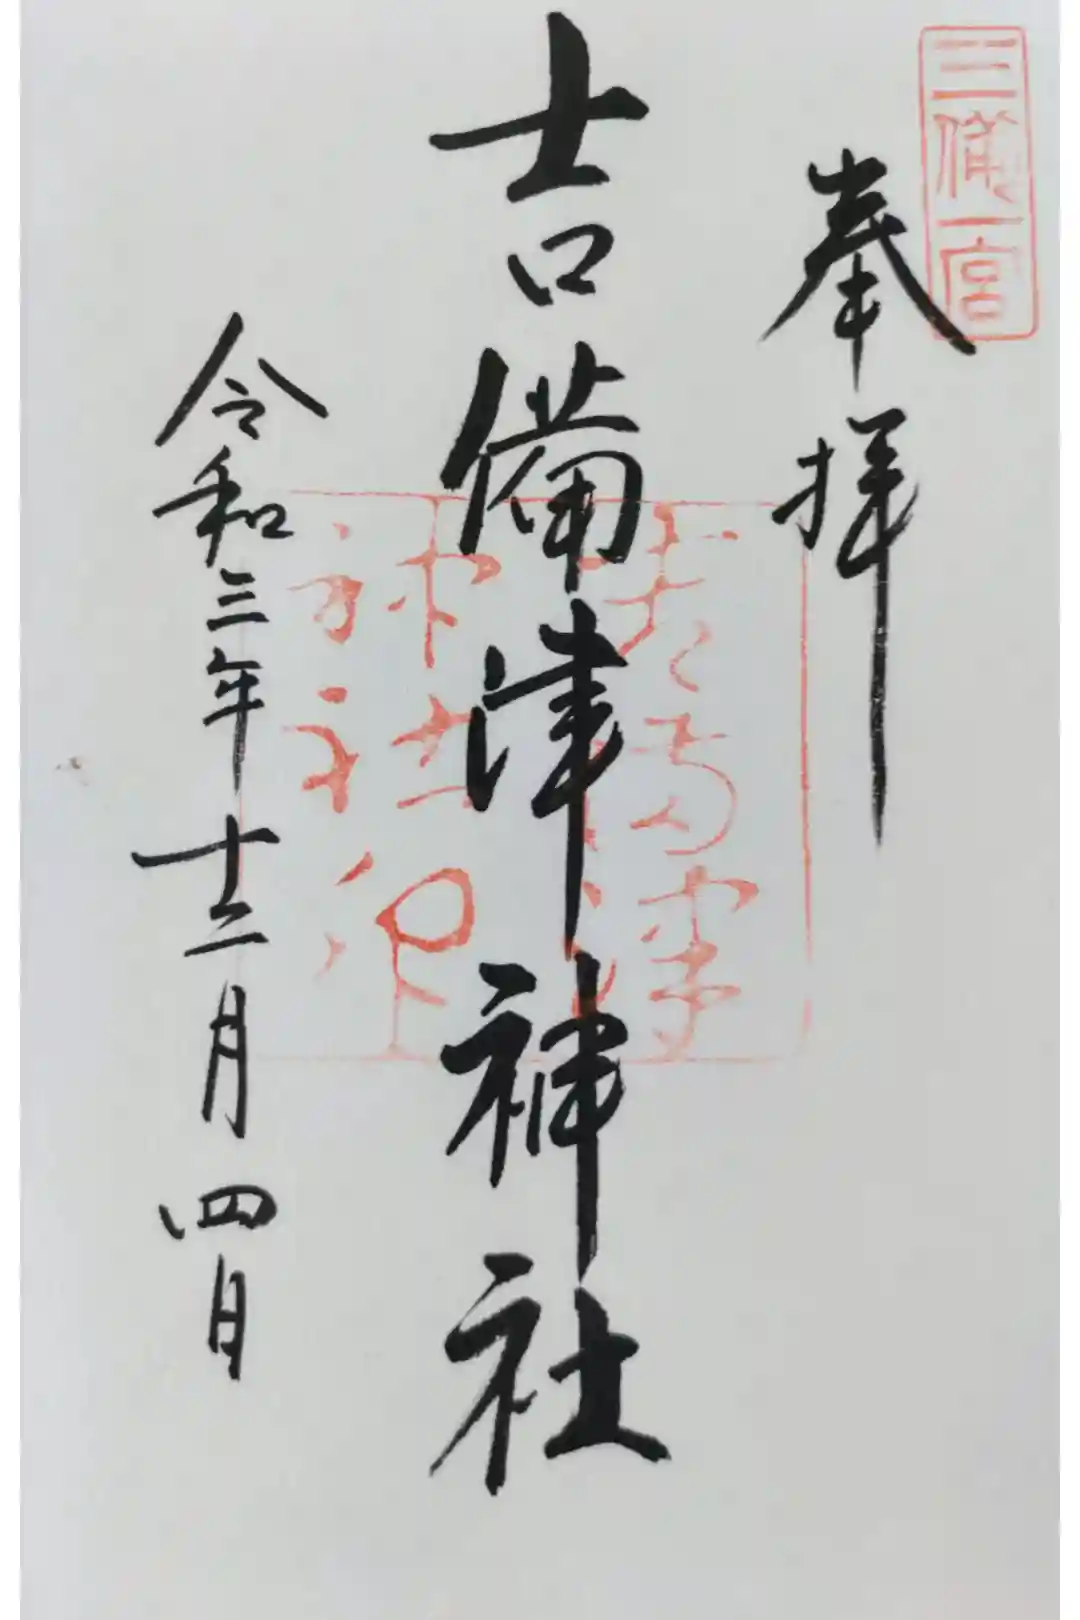 三備一宮
奉拝
吉備津神社
吉備津
神社
令和三年十二月四日